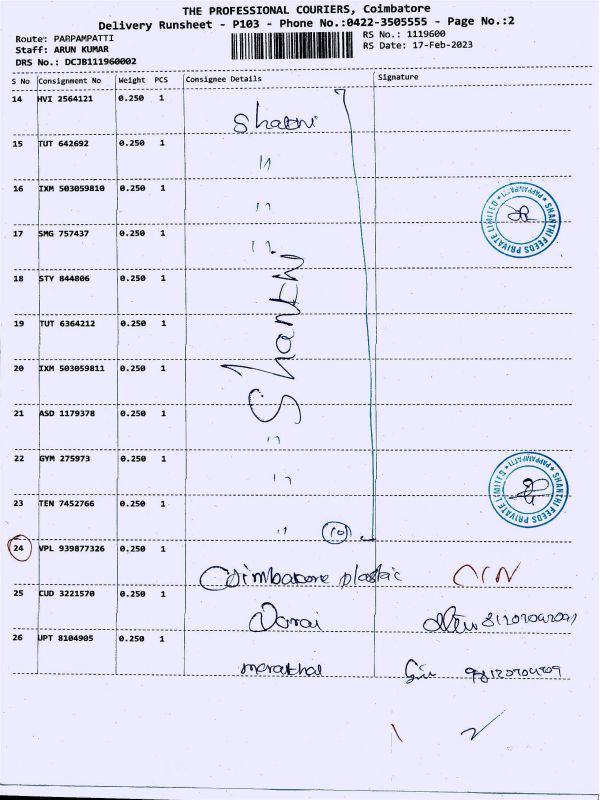 THE PROFESSIONAL COURIERS, Coimbatore
Delivery Runsheet - P103 - Phone No.:0422-3505555 - Page No.:2
Route: PAPPAMPATTI
RS No.: 1119600
Staff: ARUN KUMAR
RS Date: 17-Feb-2023
DRS No.: DCJB111960002
S No Consignment No Weight PCS Consignee Details Signature
14 HVI 2564121 0.250 1
15 TUT 642692 0.250 1 "
16 IXM 503059810 0.250 1 "
SHANTHI FEEDS PRIVATE LIMITED * PAPPAMPATTI *
17 SMG 757437 0.250 1 "
18 STY 844806 0.250 1
19 TUT 6364212 0.250 1
20 IXM 503059811 0.250 1
Shanthi
21 ASD 1179378 0.250 1 "
22 GYM 275973 0.250 1 "
SHANTHI FEEDS PRIVATE LIMITED * PAPPAMPATTI *
23 TEN 7452766 0.250 1 " 10
24 VPL 939877326 0.250 1 Coimbatore plastic
25 CUD 3221570 0.250 1
26 UPT 8104905 0.250 1